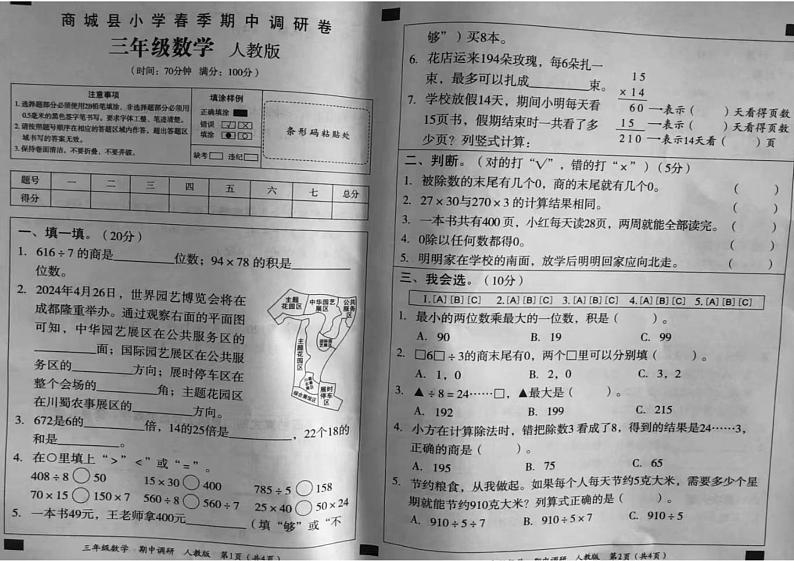 商城县小学春季期中调研卷
三年级数学 人教版
（时间：70分钟 满分：100分）
注意事项
1. 选择题部分必须使用2B铅笔填涂，非选择题部分必须用
0.5毫米的黑色签字笔书写，要求字体工整、笔迹清楚。
2. 请按照题号顺序在相应的答题区域内作答，超出答题区
域书写的答案无效。
3. 保持卷面清洁，不要折叠，不要弄破。
填涂样例
正确填涂
错误
填涂
缺考 违纪
条形码粘贴处
题号 一 二 三 四 五 六 七 总分
得分
一、填一填。（20分）
1. 616÷7的商是________位数；94×78的积是________
位数。
2. 2024年4月26日，世界园艺博览会将在
成都隆重举办。通过观察右面的平面图
可知，中华园艺展区在公共服务区的
________面；国际园艺展区在公共服
务区的________方向；展时停车区在
整个会场的________角；主题花园区
在川蜀农事展区的________方向。
主题
花园区
中华园艺
展区
公共
服务
区
主题花园区
展时
停车
区
3. 672是6的________倍，14的25倍是________，22个18的
和是________。
4. 在○里填上“>”“<”或“=”。
408÷8○50 15×30○400 785÷5○158
70×15○150×7 560÷8○560÷7 25×40○50×24
5. 一本书49元，王老师拿400元________（填“够”或“不
三年级数学 期中调研 人教版 第1页（共4页）
够”）买8本。
6. 花店运来194朵玫瑰，每6朵扎一
束，最多可以扎成________束。
7. 学校放假14天，期间小明每天看
15页书，假期结束时一共看了多
少页？列竖式计算：
15
×14
60 →表示（ ）天看得页数
15 →表示（ ）天看得页数
210 →表示14天看（ ）页
二、判断。（对的打“√”，错的打“×”）（5分）
1. 被除数的末尾有几个0，商的末尾就有几个0。 （ ）
2. 27×30与270×3的计算结果相同。 （ ）
3. 一本书共有400页，小红每天读28页，两周就能全部读完。（ ）
4. 0除以任何数都得0。 （ ）
5. 明明家在学校的南面，放学后明明回家应向北走。 （ ）
三、我会选。（10分）
1.[A][B][C] 2.[A][B][C] 3.[A][B][C] 4.[A][B][C] 5.[A][B][C]
1. 最小的两位数乘最大的一位数，积是（ ）。
A．90 B．19 C．99
2. □6□÷3的商末尾有0，两个□里可以分别填（ ）。
A．1，0 B．2，0 C．3，2
3. ▲÷8=24……□，▲最大是（ ）。
A．192 B．199 C．215
4. 小方在计算除法时，错把除数3看成了8，得到的结果是24……3，
正确的商是（ ）。
A．195 B．75 C．65
5. 节约粮食，从我做起。如果每个人每天节约5克大米，需要多少个星
期就能节约910克大米？列算式正确的是（ ）。
A．910÷5÷7 B．910÷5×7 C．910×5÷7
期中调研 人教版 第2页（共4页）